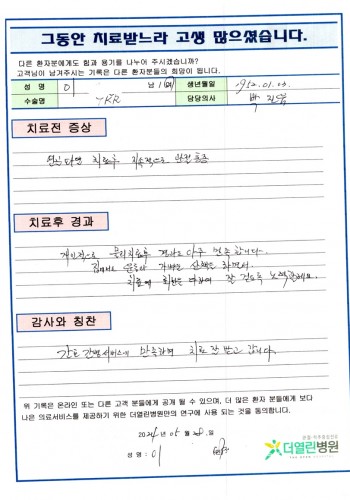 그동안 치료받느라 고생 많으셨습니다.
다른 환자분에게도 힘과 용기를 나누어 주시겠습니까?
고객님이 남겨주시는 기록은 다른 환자분들의 희망이 됩니다.
성 명 이 남 / 여 생년월일 1952.01.03.
수술명 TKR 담당의사 박
치료전 증상
치료후
치료후 경과
개인적으로 물리치료후 결과는 아주 만족합니다.
집에서도 운동과 가벼운 산책을 하면서
치료에 최선을 다하여 잘 걷도록 노력할게요.
감사와 칭찬
간호 간병서비스에 만족하며 치료 잘 받고 갑니다.
위 기록은 온라인 또는 다른 고객 분들에게 공개 될 수 있으며, 더 많은 환자 분들에게 보다
나은 의료서비스를 제공하기 위한 더열린병원만의 연구에 사용 되는 것을 동의합니다.
2024년 05월 일.
성명 : 이
더열린병원